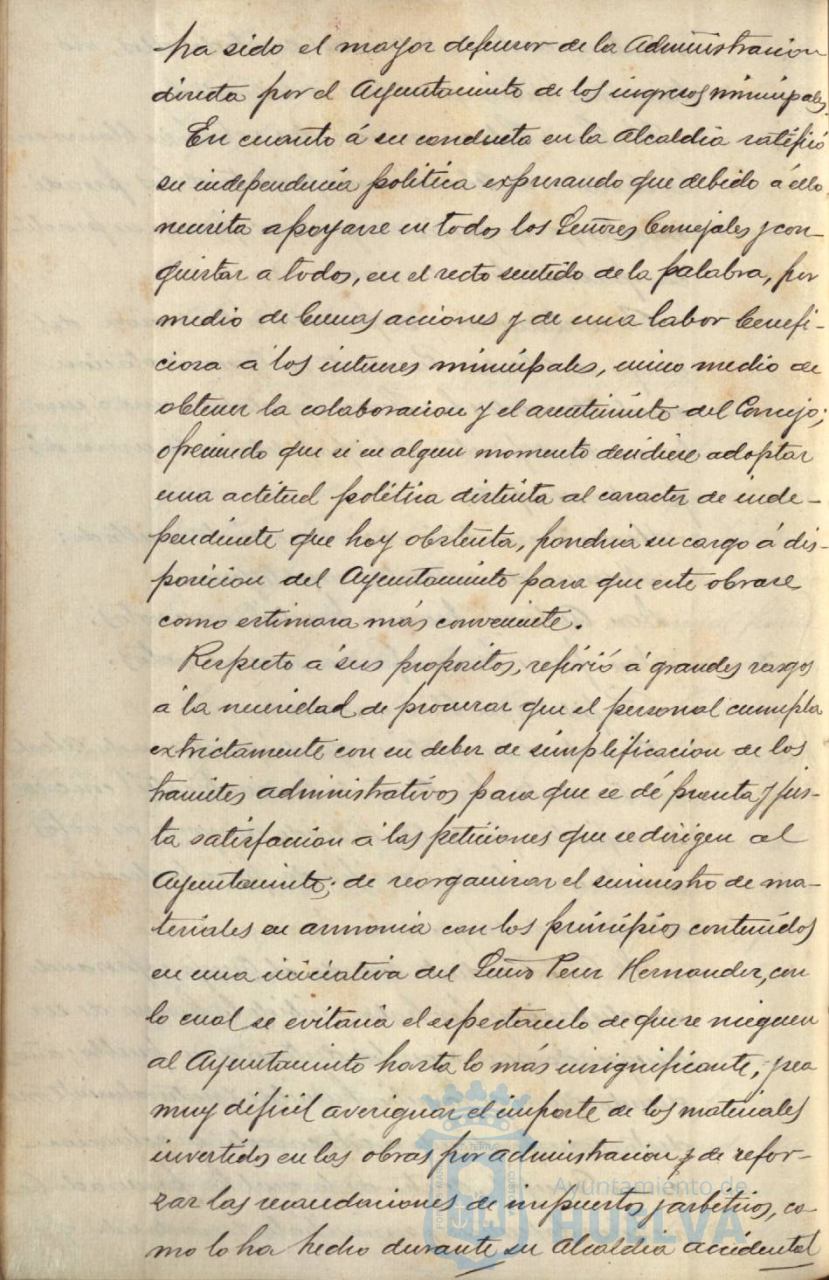 ha sido el mayor defensor de la Administracion
directa por el Ayuntamiento de los ingresos municipales.
En cuanto á su conducta en la Alcaldia ratificó
su independencia politica expresando que debido á ello
necesita apoyarse en todos los Señores Concejales y con-
quistar a todos, en el recto sentido de la palabra, por
medio de buenas acciones y de una labor benefi-
ciosa á los intereses municipales, unico medio de
obtener la colaboracion y el asentimiento del Concejo;
ofreciendo que si en algun momento decidiese adoptar
una actitud política distinta al caracter de inde-
pendiente que hoy obstenta, pondria su cargo á dis-
posicion del Ayuntamiento para que este obrase
como estimara más conveniente.
Respecto á sus propositos, refirió á grandes rasgos
á la necesidad de procurar que el personal cumpla
extrictamente con su deber de simplificacion de los
tramites administrativos para que se dé pronta y jus-
ta satisfaccion á las peticiones que se dirigen al
Ayuntamiento; de reorganizar el suministro de ma-
teriales en armonia con los principios contenidos
en una iniciativa del Señor Perez Hernandez, con
lo cual se evitaria el espectaculo de que se nieguen
al Ayuntamiento hasta lo más insignificante, y sea
muy dificil averiguar el importe de los materiales
invertidos en las obras por administracion y de refor-
zar las recaudaciones de impuestos y arbitrios, co-
mo lo ha hecho durante su Alcaldia accidental
Ayuntamiento de
HUELVA